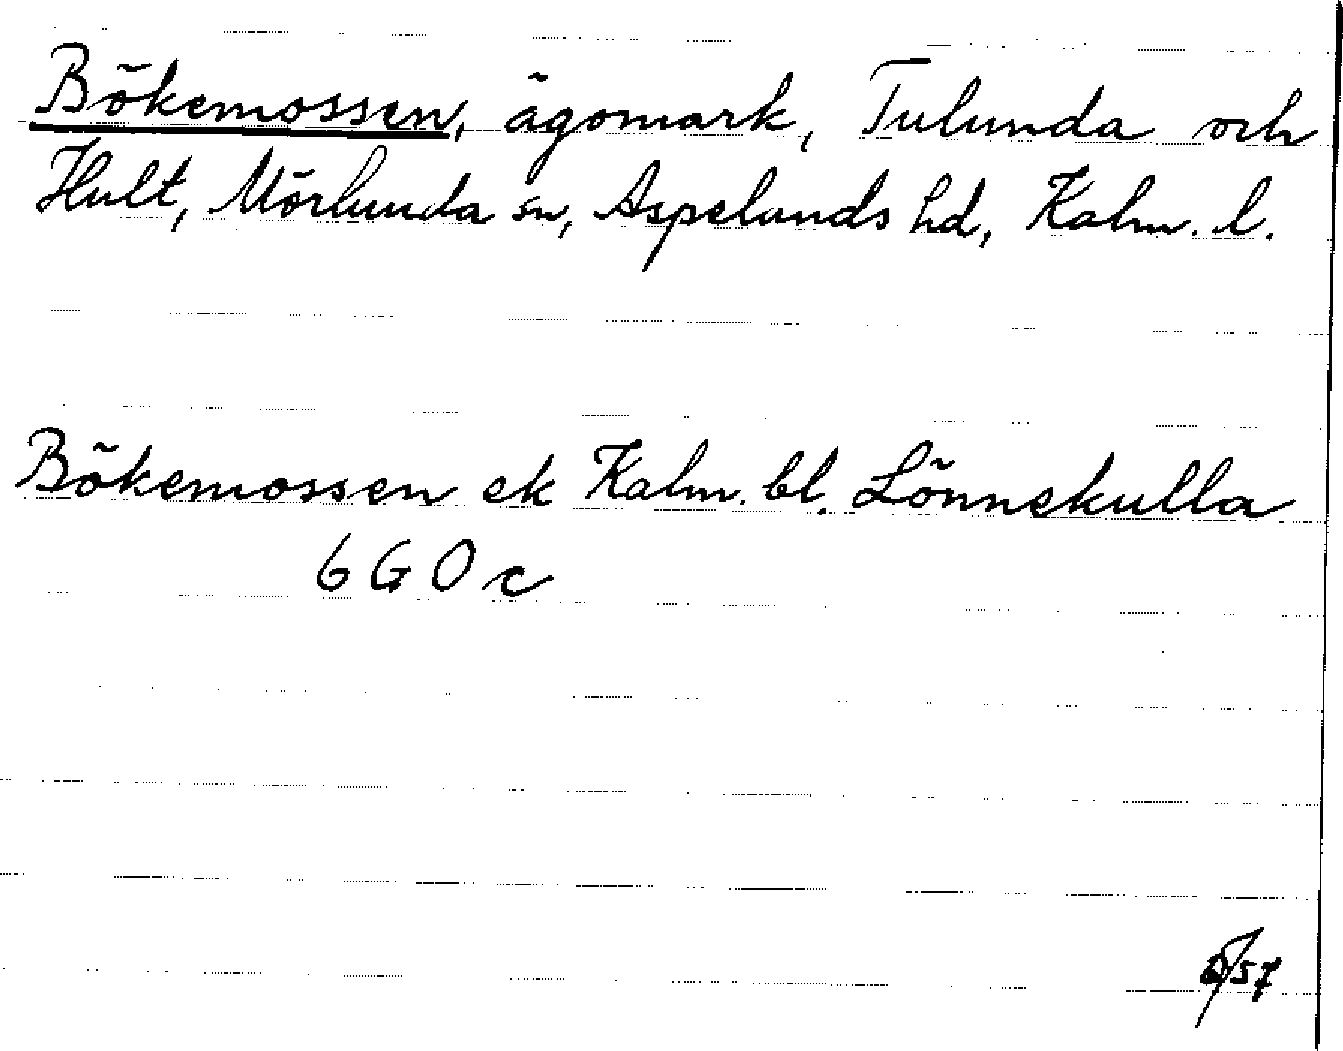 Bökemossen, ägomark, Tulunda och
Hult, Mörlunda sn, Aspelands hd, Kalm. l.
Bökemossen ek Kalm. bl. Lönnekulla
6 G 0 c